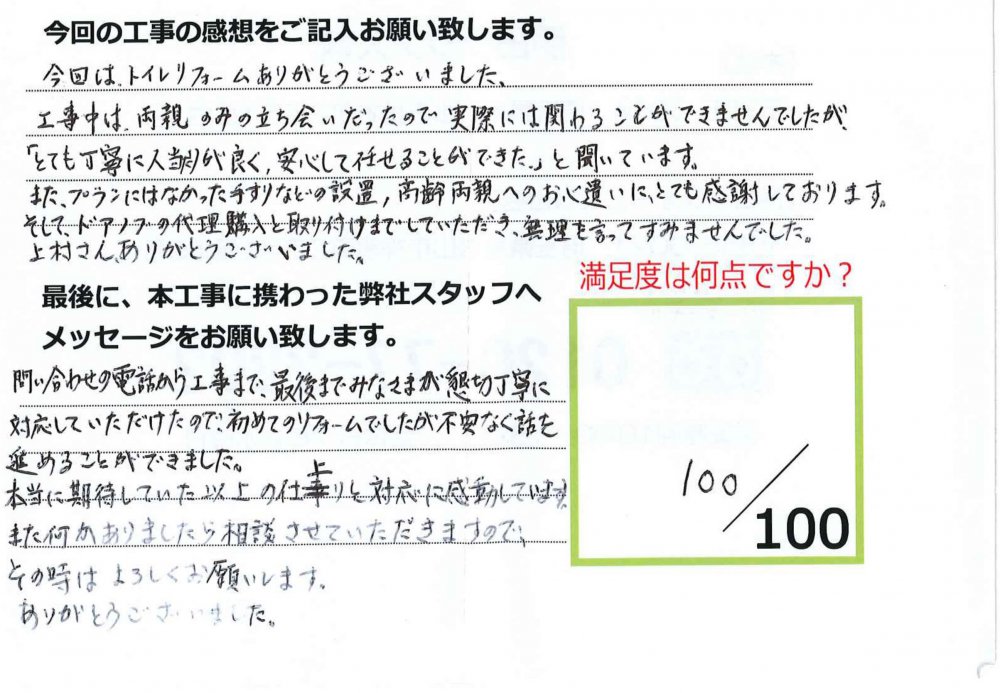 今回の工事の感想をご記入お願い致します。
今回は、トイレリフォームありがとうございました、
工事中は、両親のみの立ち会いだったので実際には関わることができませんでしたが、
「とても丁寧に人当りが良く、安心して任せることができた。」と聞いています。
また、プランにはなかった手すりなどの設置,高齢両親へのお心遣いに、とても感謝しております。
そして、ドアノブの代理購入と取り付けまでしていただき、無理を言ってすみませんでした。
上村さん、ありがとうございました。
満足度は何点ですか？
最後に、本工事に携わった弊社スタッフへ
メッセージをお願い致します。
問い合わせの電話から工事まで、最後までみなさまが懇切丁寧に
対応していただけたので、初めてのリフォームでしたが不安なく話を
進めることができました。
本当に期待していた以上の仕上りと対応に感動しています
また何かありましたら相談させていただきますので、
その時はよろしくお願いします。
ありがとうございました。
100/100